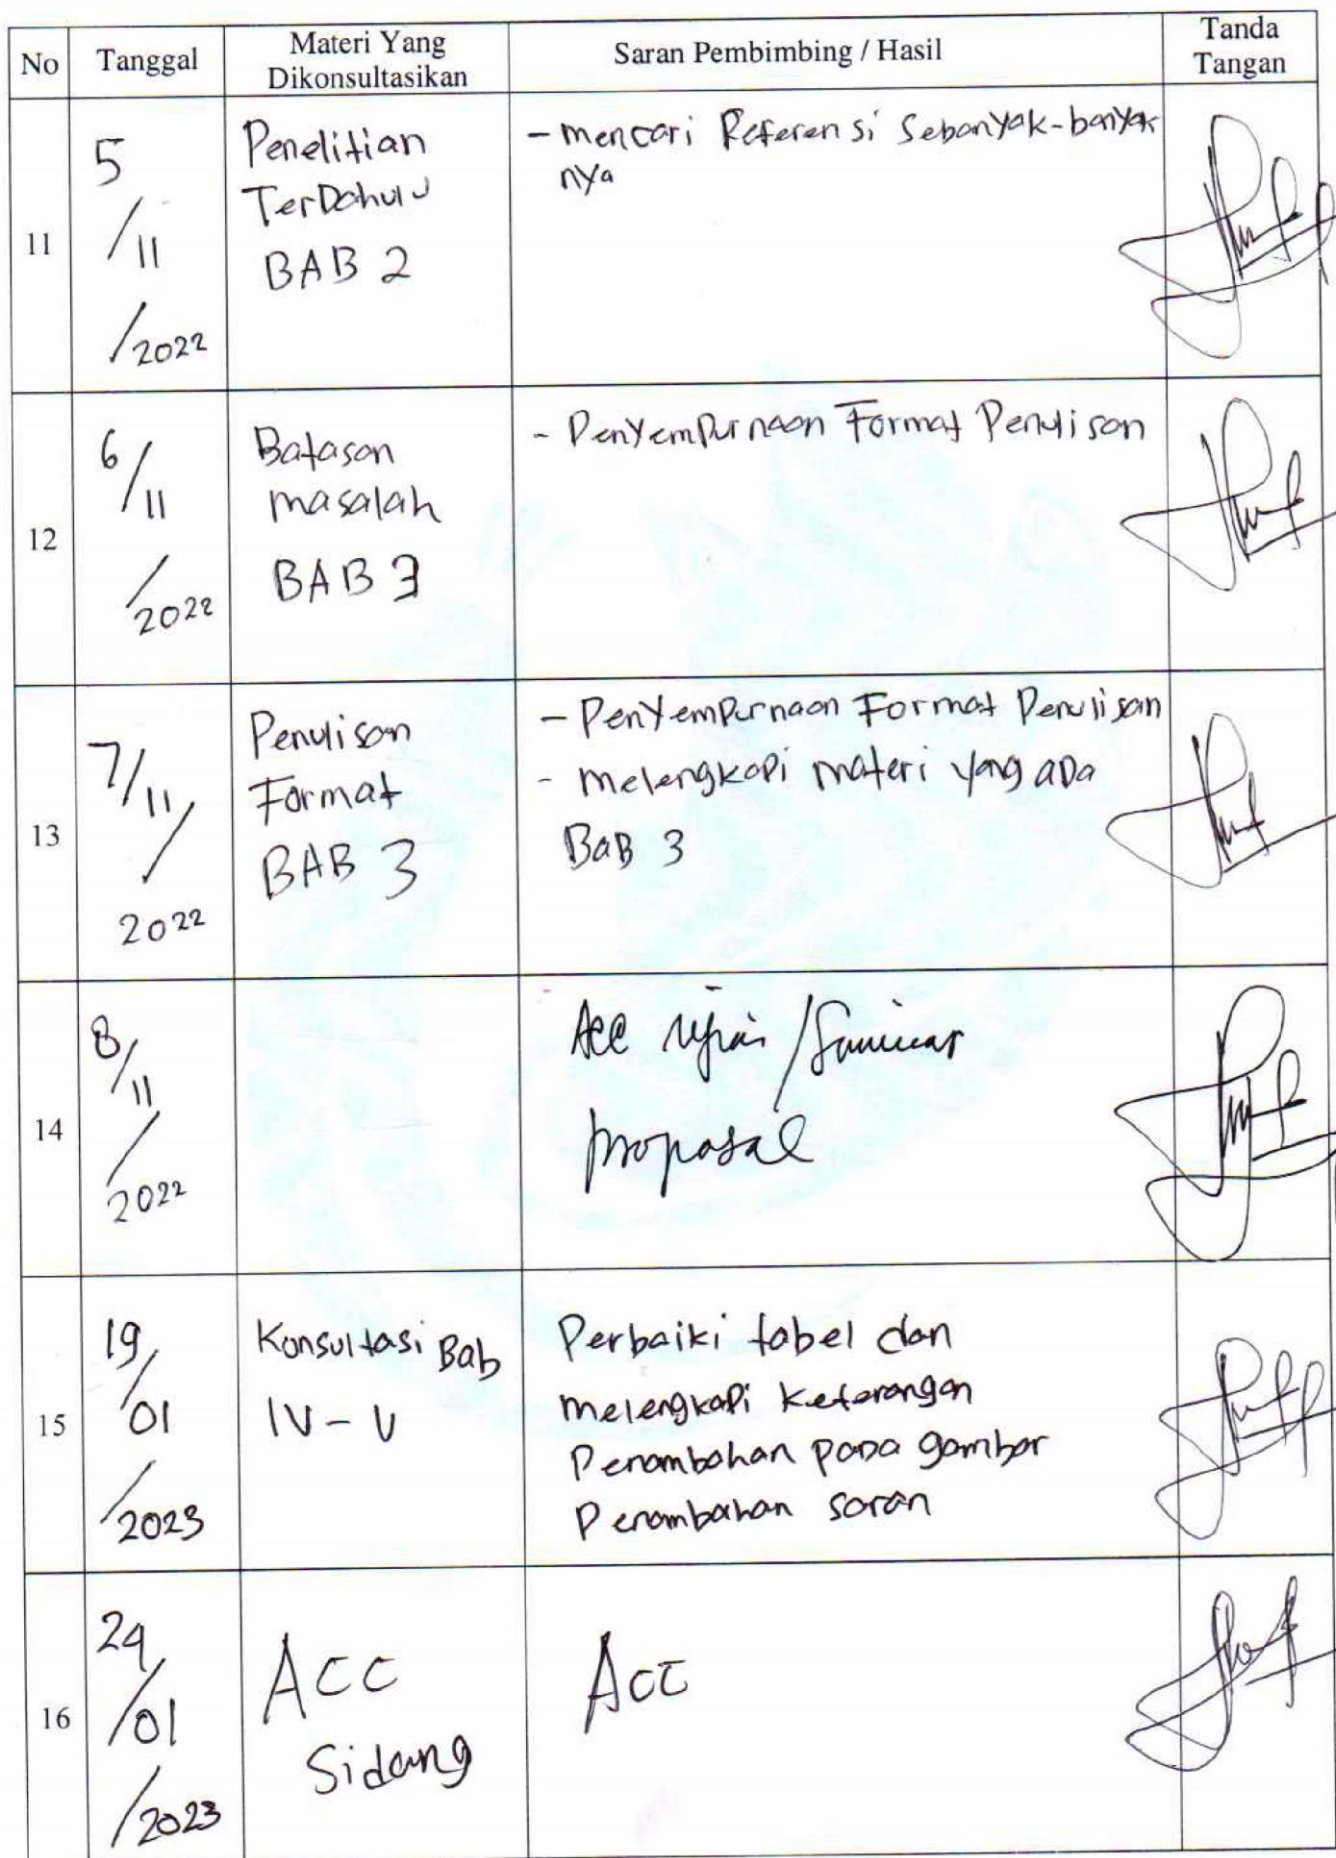 No
Tanggal
Materi Yang
Dikonsultasikan
Saran Pembimbing / Hasil
Tanda
Tangan
11
5
/11
/2022
Penelitian
TerDahulu
BAB 2
- mencari Referensi Sebanyak-banyak
nya
12
6/
11
/2022
Batasan
masalah
BAB 3
- Penyempurnaan Format Penulisan
13
7/11/
2022
Penulisan
Format
BAB 3
- Penyempurnaan Format Penulisan
- melengkapi materi yang aDa
BaB 3
14
8/
11
/2022
Acc ujian / Seminar
proposal
15
19/
01
/2023
Konsultasi Bab
IV - V
Perbaiki tabel dan
melengkapi keterangan
Penambahan paDa gambar
Penambahan saran
16
24
/01
/2023
ACC
Sidang
Acc